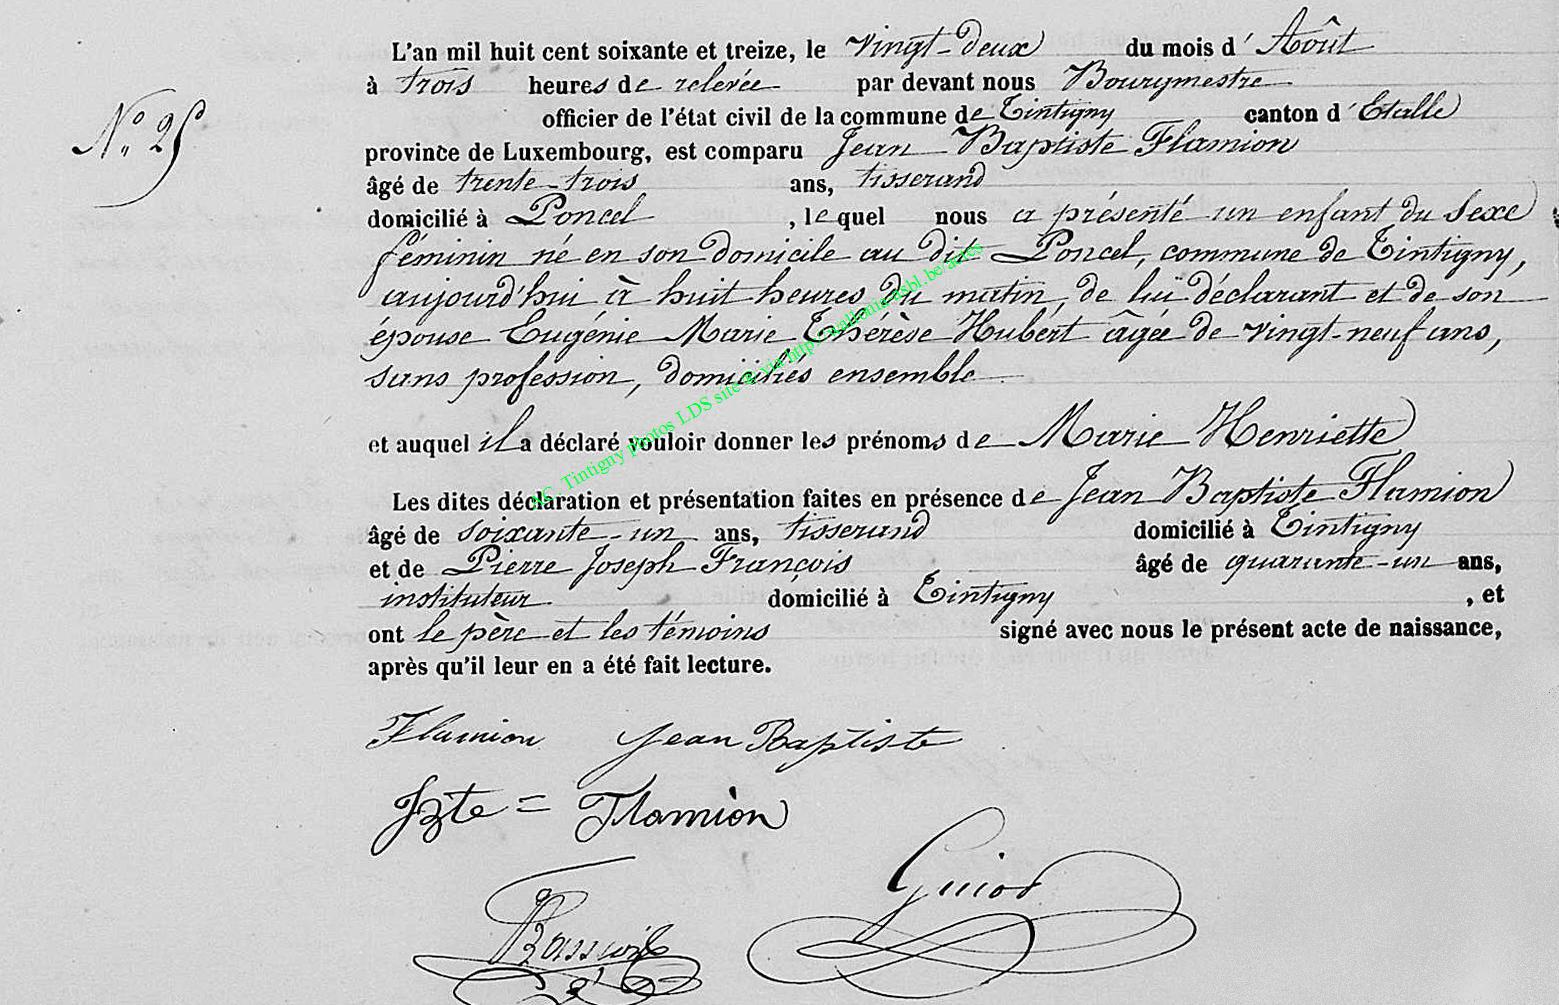 L'an mil huit cent soixante et treize, le vingt-deux du mois d'Août
à trois heures de relevée par devant nous Bourgmestre
N° 25
officier de l'état civil de la commune de Tintigny canton d'Etalle
province de Luxembourg, est comparu Jean Baptiste Flamion
âgé de trente-trois ans, tisserand
domicilié à Poncel, lequel nous a présenté un enfant du Sexe
féminin né en son domicile au dit Poncel, commune de Tintigny,
aujourd'hui à huit heures du matin, de lui déclarant et de son
épouse Eugénie Marie Thérèse Hubert âgée de vingt-neuf ans,
sans profession, domiciliés ensemble
et auquel il a déclaré vouloir donner les prénoms de Marie Henriette
Les dites déclaration et présentation faites en présence de Jean Baptiste Flamion
âgé de soixante-un ans, tisserand domicilié à Tintigny
et de Pierre Joseph François âgé de quarante-un ans,
instituteur domicilié à Tintigny, et
ont le père et les témoins signé avec nous le présent acte de naissance,
après qu'il leur en a été fait lecture.
AC Tintigny photos LDS site & via http://wallonia-asbl.be/actes
Flamion Jean Baptiste
Jbte = Flamion